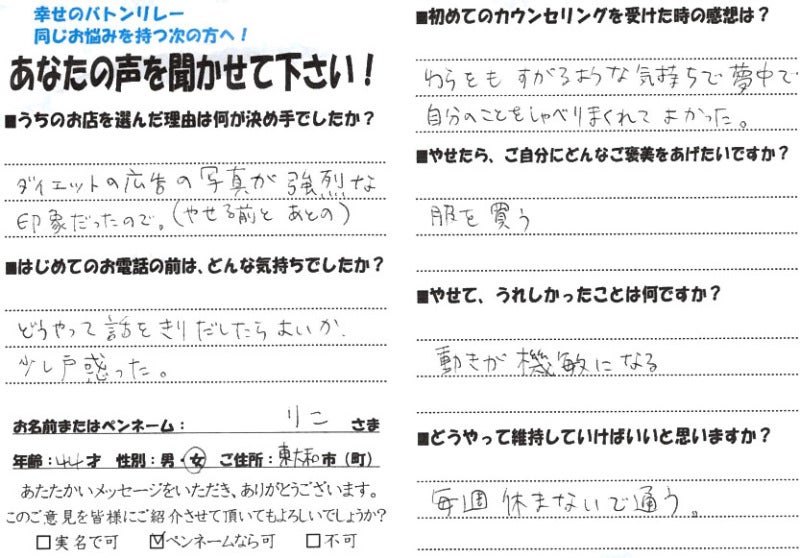 幸せのバトンリレー
同じお悩みを持つ次の方へ!
あなたの声を聞かせて下さい!
■うちのお店を選んだ理由は何が決め手でしたか?
ダイエットの広告の写真が強烈な
印象だったので。(やせる前とあとの)
■はじめてのお電話の前は、どんな気持ちでしたか?
どうやって話をきりだしたらよいか、
少し戸惑った。
お名前またはペンネーム: りこ さま
年齢:44才 性別:男・女 ご住所:東大和市(町)
あたたかいメッセージをいただき、ありがとうございます。
このご意見を皆様にご紹介させて頂いてもよろしいでしょうか?
□実名で可 ☑ペンネームなら可 □不可
■初めてのカウンセリングを受けた時の感想は?
わらをもすがるような気持ちで夢中で
自分のことをしゃべりまくれてよかった。
■やせたら、ご自分にどんなご褒美をあげたいですか?
服を買う
■やせて、うれしかったことは何ですか?
動きが機敏になる
■どうやって維持していけばいいと思いますか?
毎週休まないで通う。